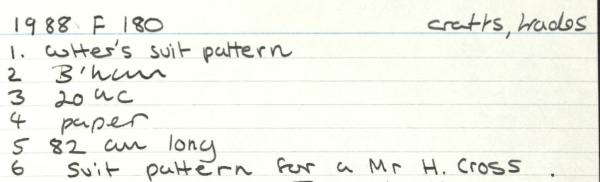 1988 F 180 crafts, trades
1. cutter's suit pattern
2 B'ham
3 20th C
4 paper
5 82 cm long
6 Suit pattern for a Mr H. Cross.